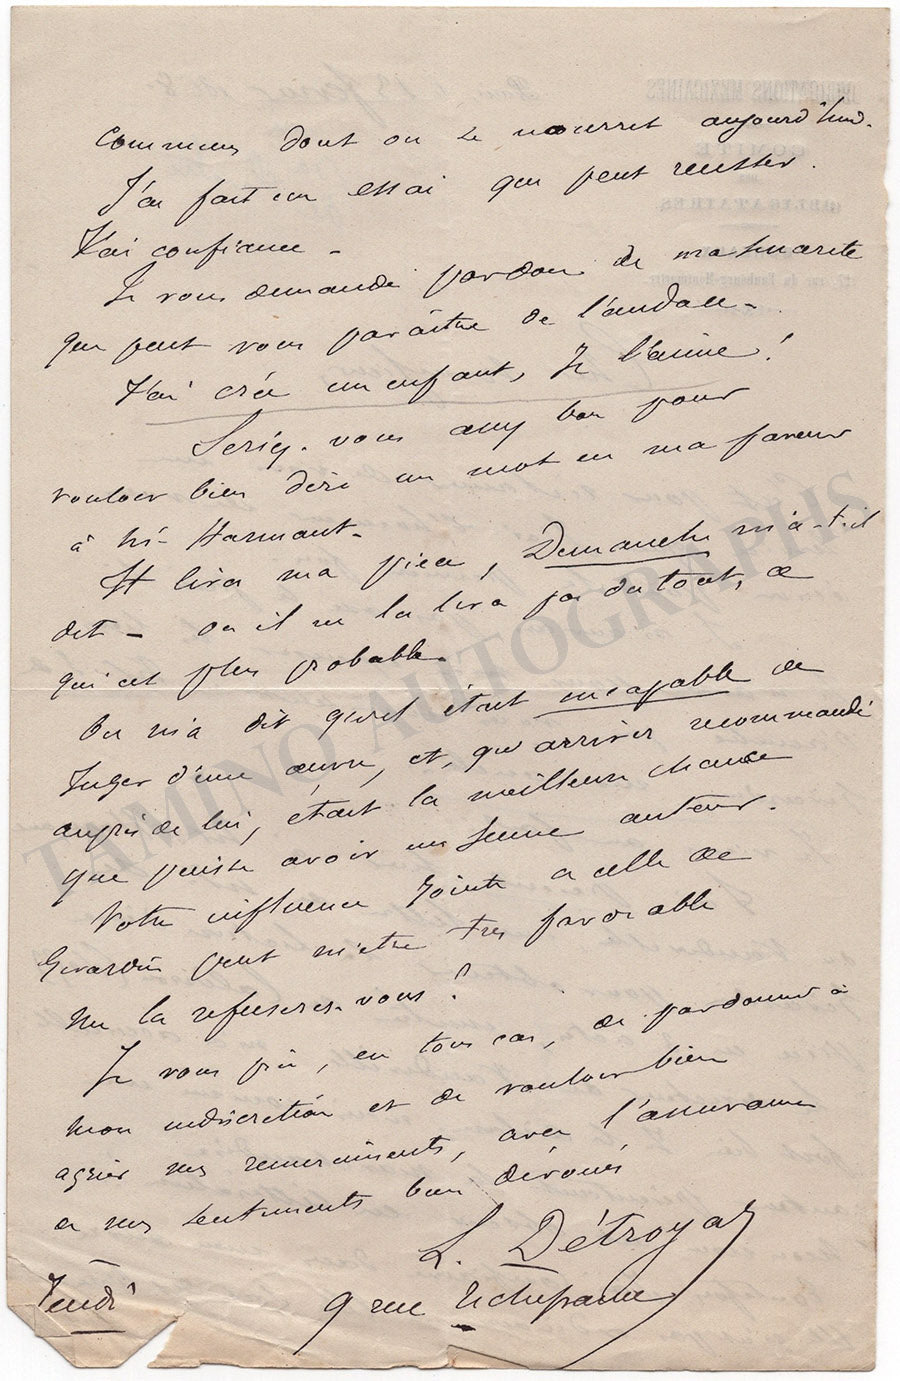 communs dont on se nourrit aujourd'hui.
J'ai fait un essai qui peut reussir.
J'ai confiance –
Je vous demande pardon de ma
qui peut vous paraître de l'audace –
J'ai crée un enfant, Je l'aime !
Seriez-vous assez bon pour
vouloir bien dire un mot en ma faveur
à Mr Harmant –
Il lira ma pièce, Demanche m'a-t-il
dit – ou il ne la lira pas du tout, ce
qui est plus probable.
On m'a dit qu'il était incapable de
Juger d'une œuvre, et, qu'arriver recommandé
auprès de lui, était la meilleure chance
que puisse avoir un Jeune auteur.
Votre influence Jointe a celle de
Girardin peut m'être très favorable
Me la refuserez-vous ?
Je vous prie, en tous cas, de pardonner à
mon indiscrétion et de vouloir bien
agréer mes remerciments, avec l'assurance
de mes sentiments bien dévoués
L. Détroyat
Jeudi 9 rue
TAMINO AUTOGRAPHS